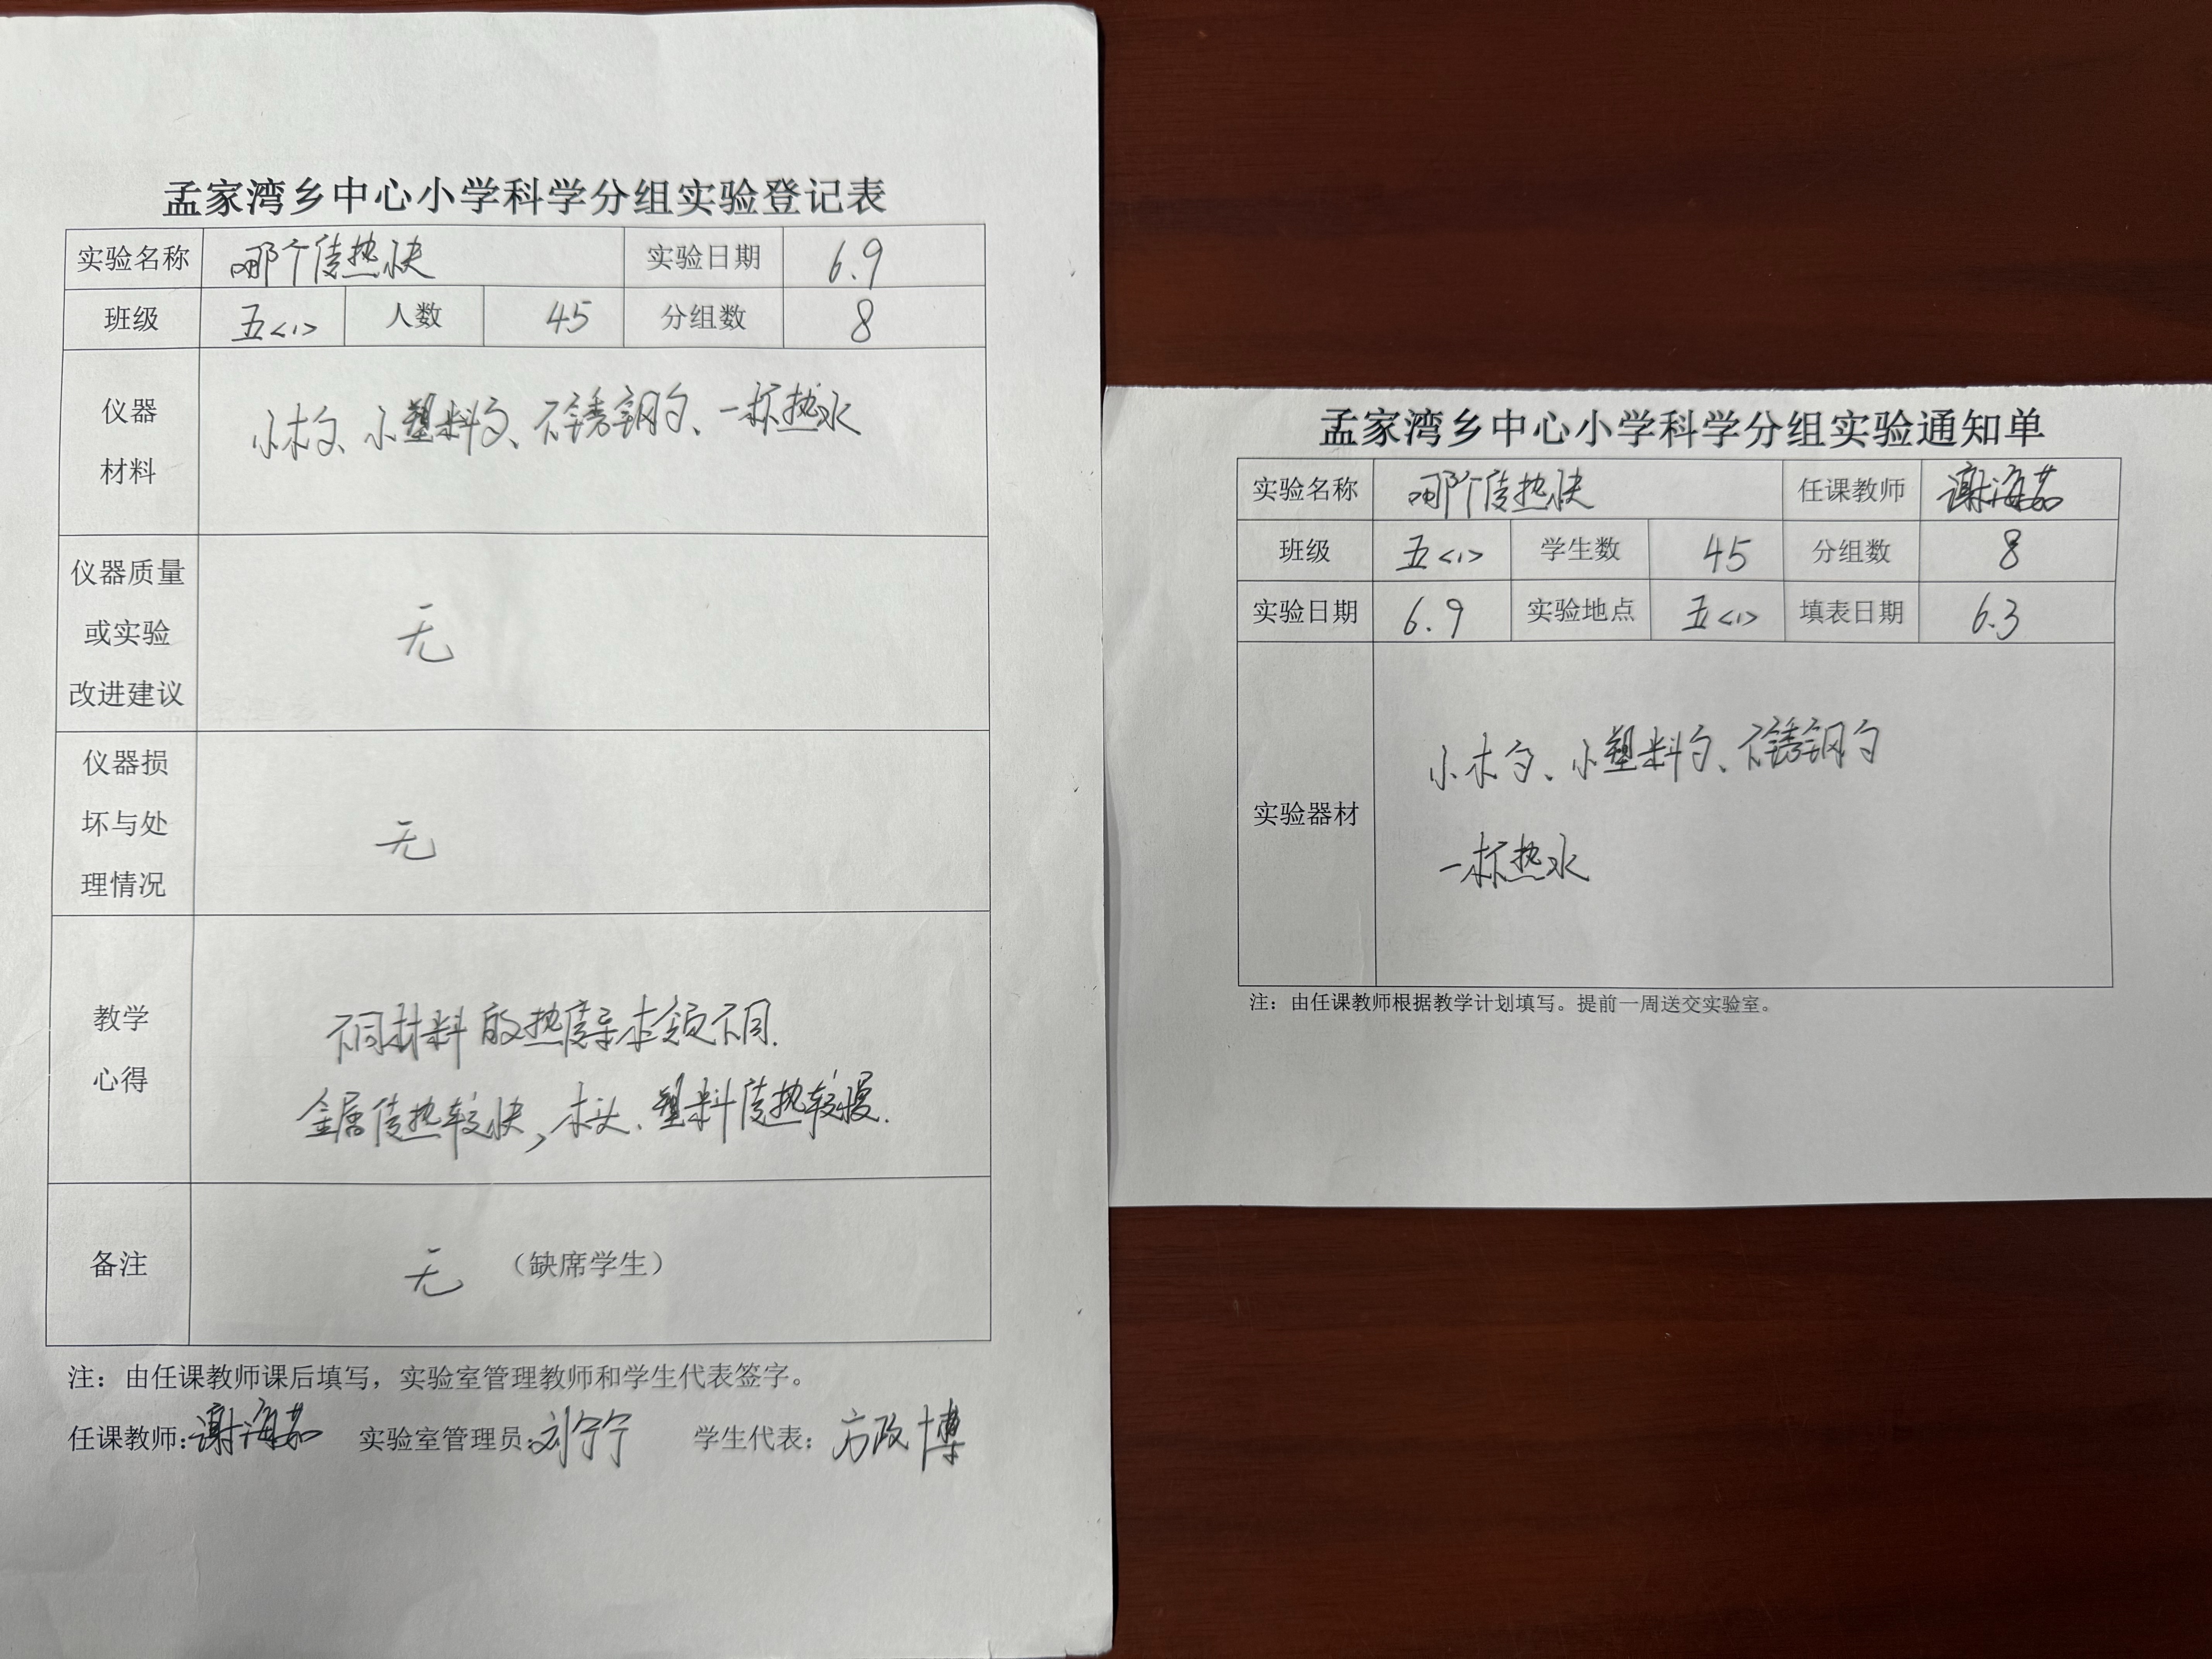 孟家湾乡中心小学科学分组实验登记表
实验名称 哪个传热快 实验日期 6.9
班级 五<1> 人数 45 分组数 8
仪器
材料
小木勺、小塑料勺、不锈钢勺、一杯热水
仪器质量
或实验
改进建议
无
仪器损
坏与处
理情况
无
教学
心得
不同材料的热传导本领不同.
金属传热较快，木头、塑料传热较慢.
备注 无 （缺席学生）
注：由任课教师课后填写，实验室管理教师和学生代表签字。
任课教师：谢海茹 实验室管理员：刘宁宁 学生代表：方政博
孟家湾乡中心小学科学分组实验通知单
实验名称 哪个传热快 任课教师 谢海茹
班级 五<1> 学生数 45 分组数 8
实验日期 6.9 实验地点 五<1> 填表日期 6.3
实验器材
小木勺、小塑料勺、不锈钢勺
一杯热水
注：由任课教师根据教学计划填写。提前一周送交实验室。